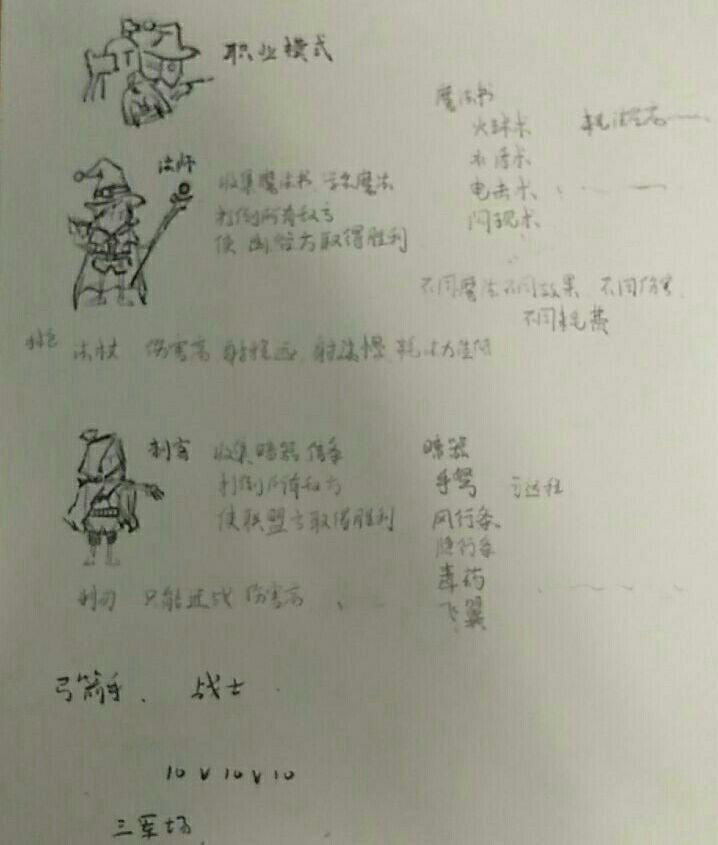 职业模式
魔法书
火球术
法师
收集魔法书 学习魔法
打倒所有敌方
使 方取得胜利
电击术
闪现术
不同魔法不同效果 不同伤害
不同耗费
法杖 伤害高 射程远 射速慢
刺客 收集暗器 信条
打倒所有敌方
使联盟方取得胜利
暗器
手弩 可远程
风行条
隐行条
毒药
飞翼
利刃 只能近战 伤害高
弓箭手、 战士
10 V 10 V 10
三军场